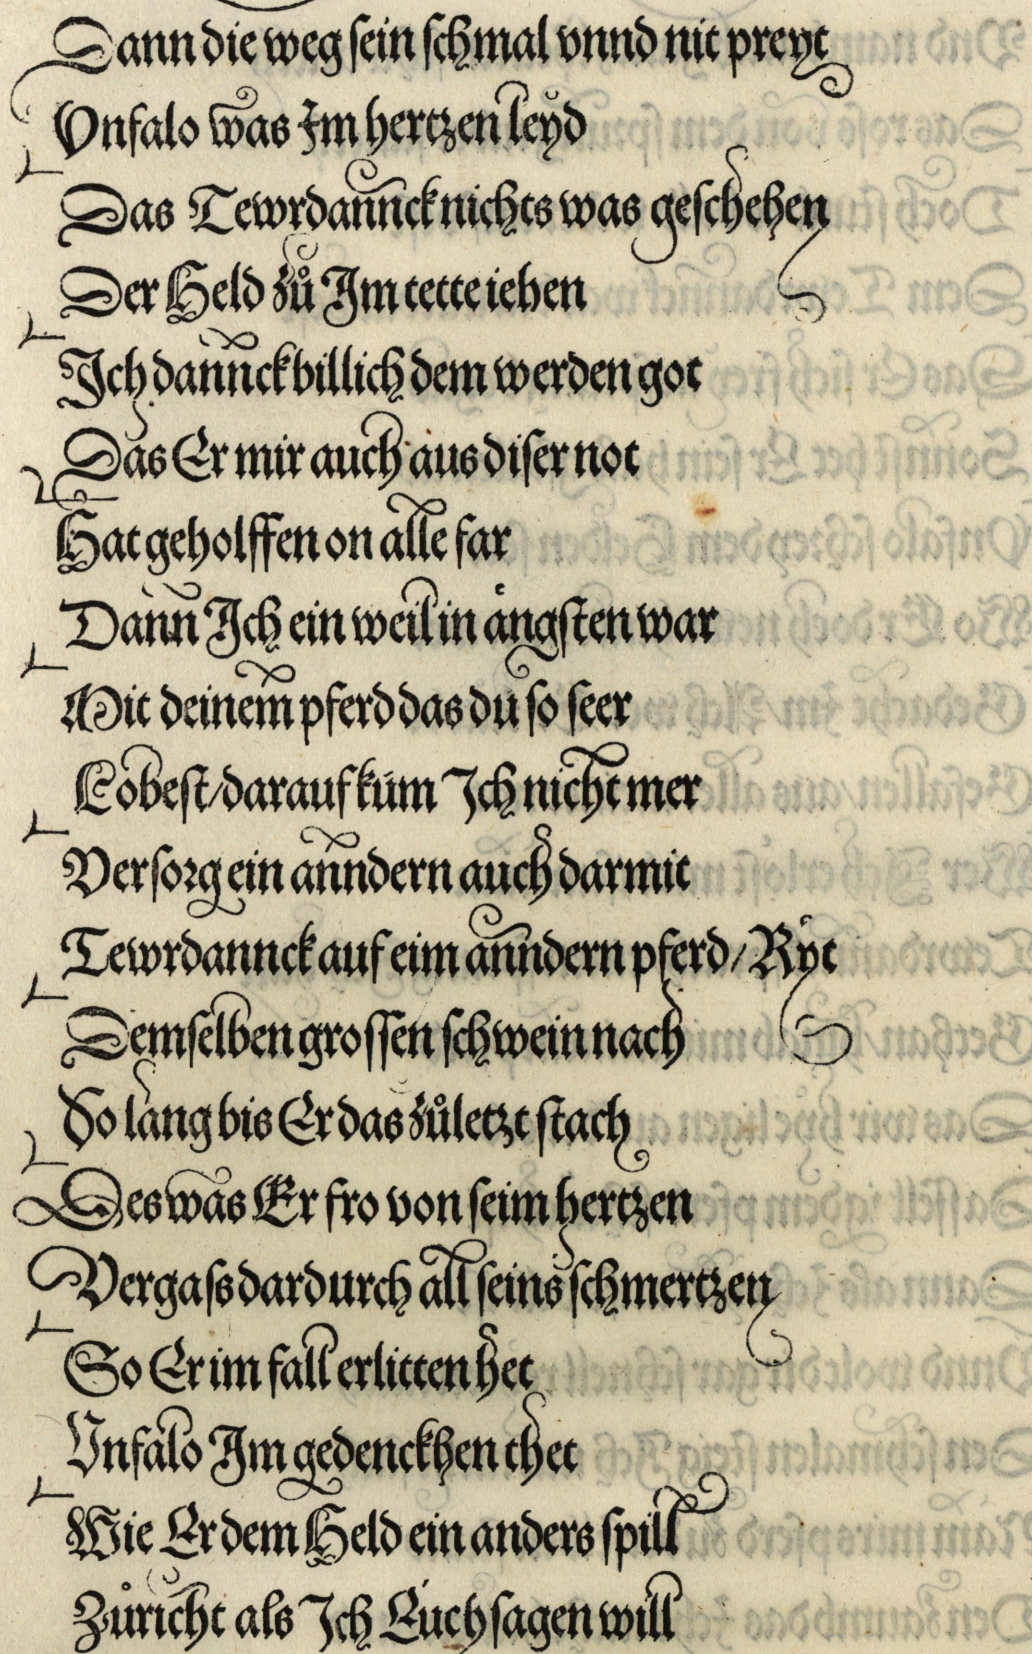 Dann die weg sein schmal vnnd nit preyt
Vnfalo was Im hertzen leyd
Das Tewrdannck nichts was geschehen
Der Held zů Im tette iehen
Ich dannck billich dem werden got
Das Er mir auch aus diser not
Hat geholffen on alle far
Dann Ich ein weil in ångsten war
Mit deinem pferd das du so seer
Lobest/darauf kum Ich nicht mer
Versorg ein anndern auch darmit
Tewrdannck auf eim anndern pferd/Ryt
Demselben grossen schwein nach
So lang bis Er das zůletzt stach
Des was Er fro von seim hertzen
Vergass dardurch all seins schmertzen
So Er im fall erlitten het
Vnfalo Im gedenckhen thet
Wie Er dem Held ein anders spill
Zůricht als Ich Euch sagen will